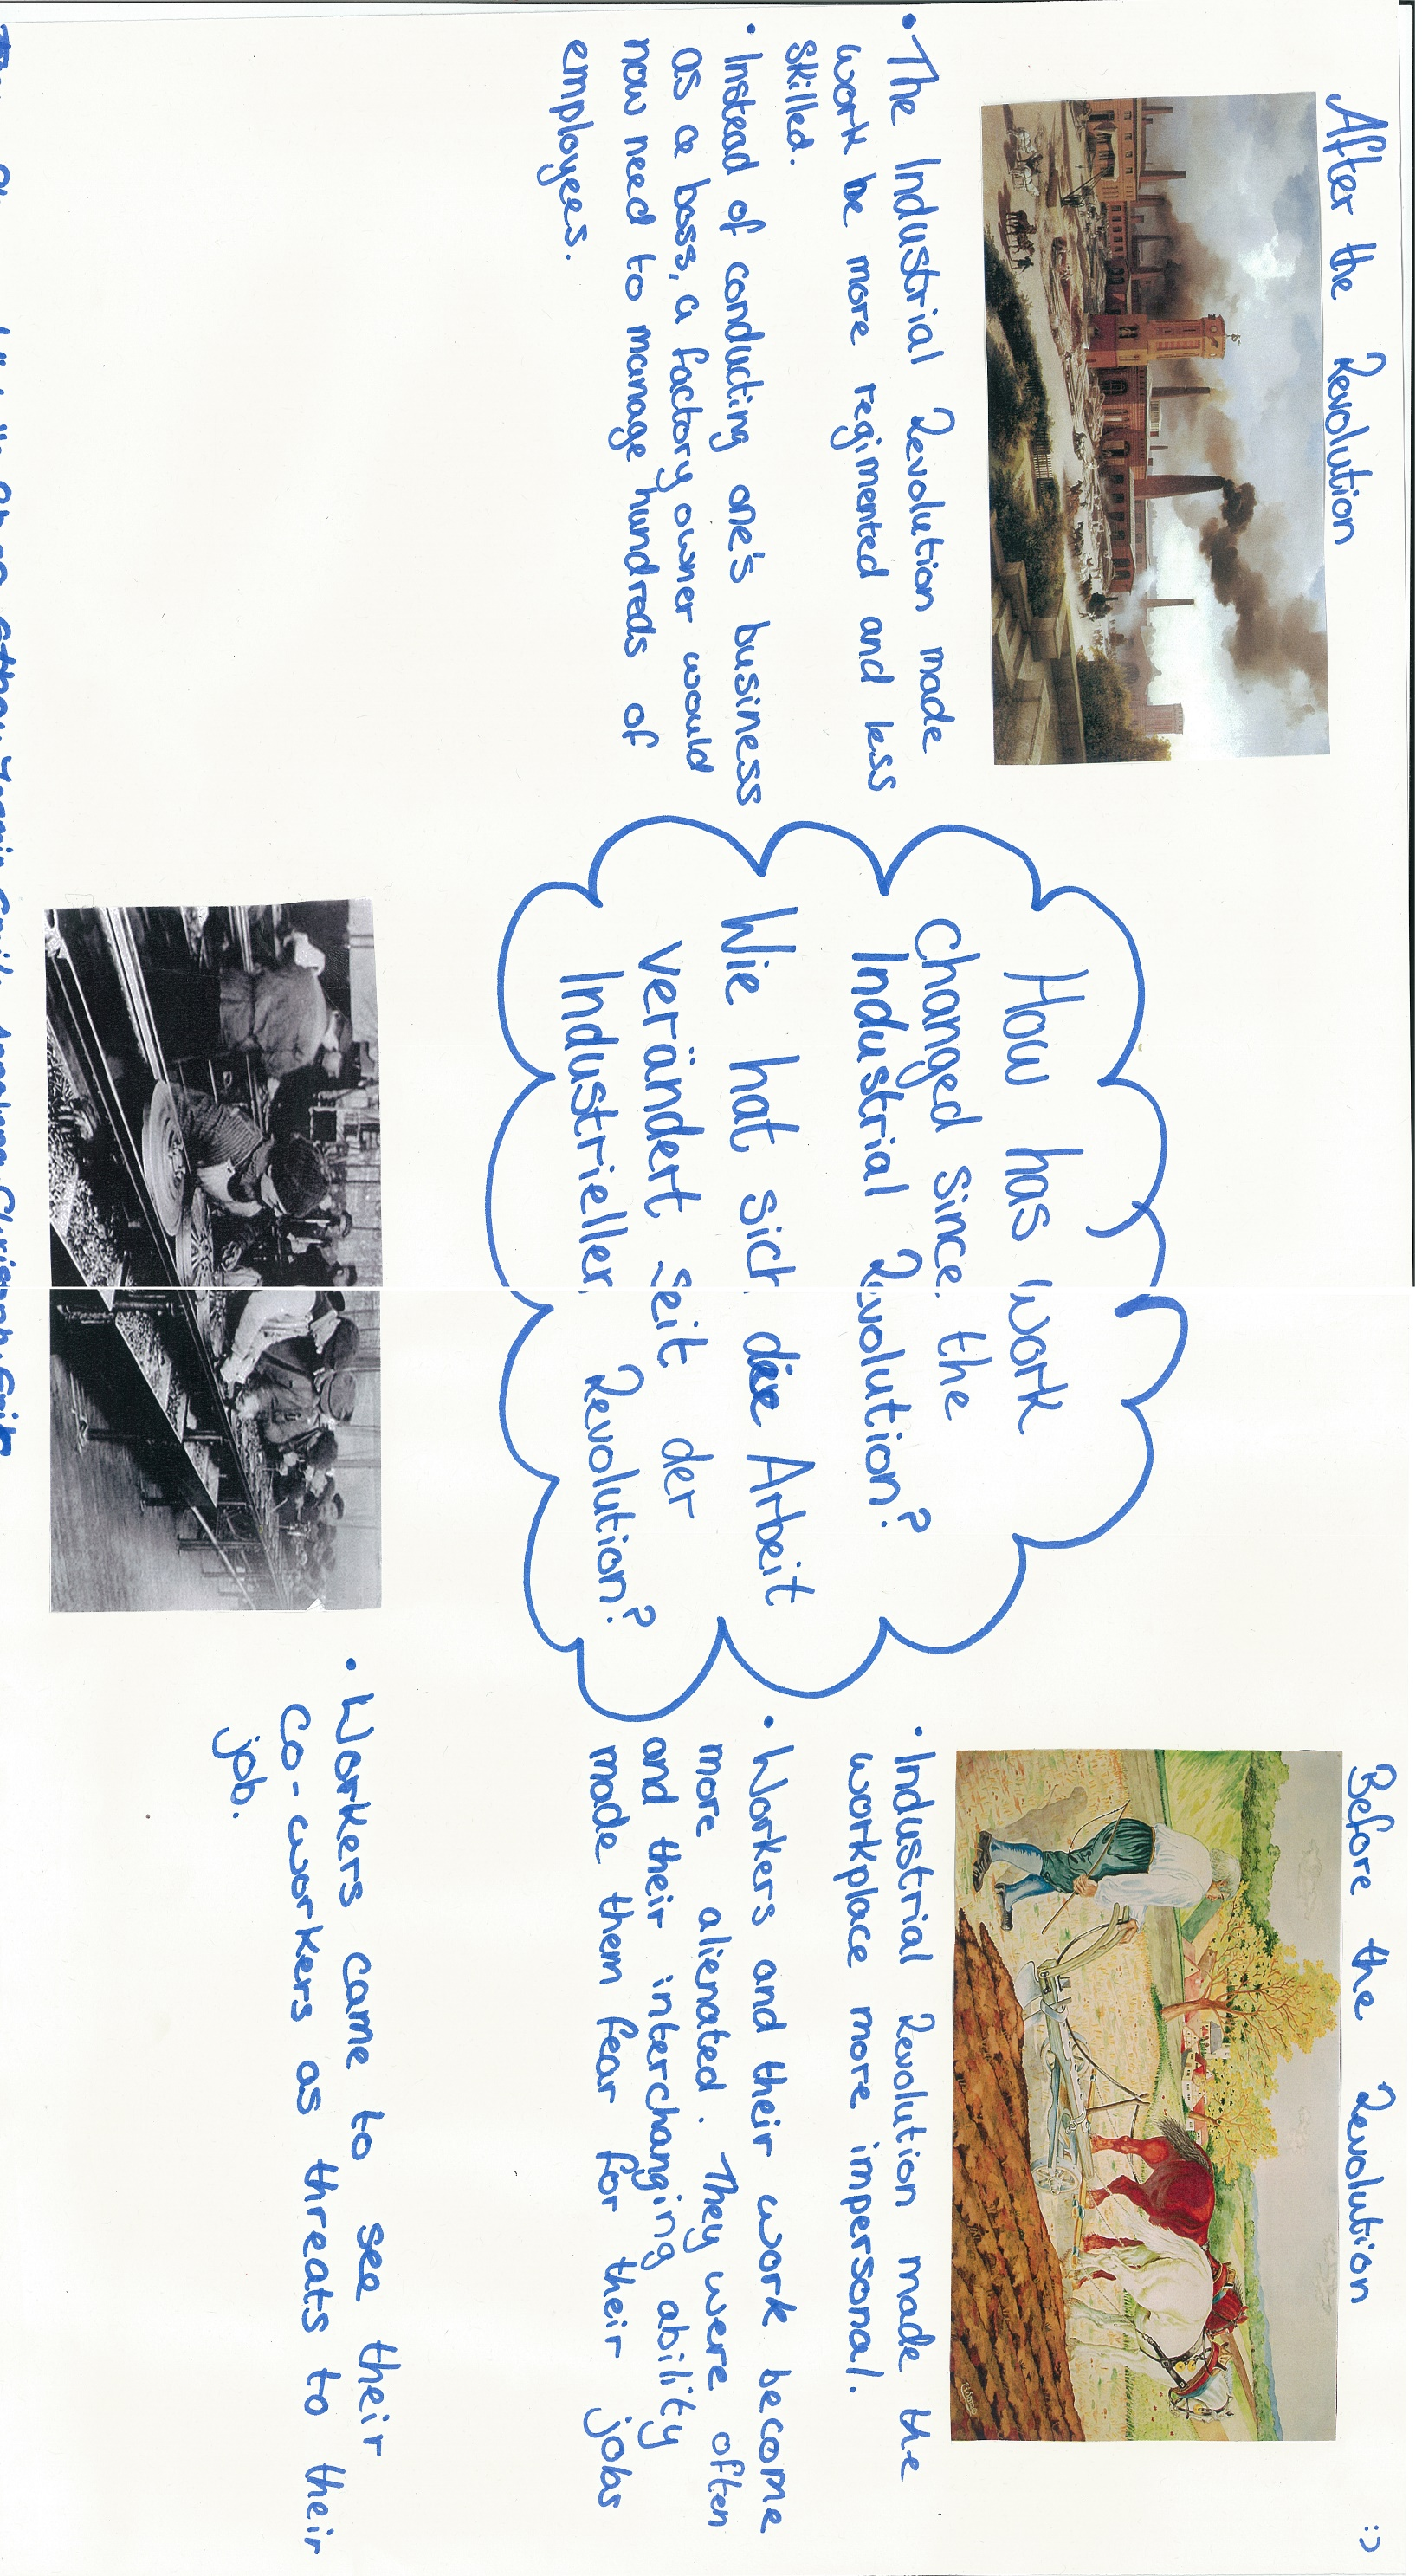 After the Revolution
• The Industrial Revolution made
work be more regimented and less
skilled.
• Instead of conducting one's business
as a boss, a factory owner would
now need to manage hundreds of
employees.
How has work
changed since the
Industrial Revolution?
Wie hat sich die Arbeit
verändert seit der
Industrieller Revolution?
Before the Revolution
:)
• Industrial Revolution made the
workplace more impersonal.
• Workers and their work become
more alienated. They were often
and their interchanging ability
made them fear for their jobs
• Workers came to see their
co-workers as threats to their
job.